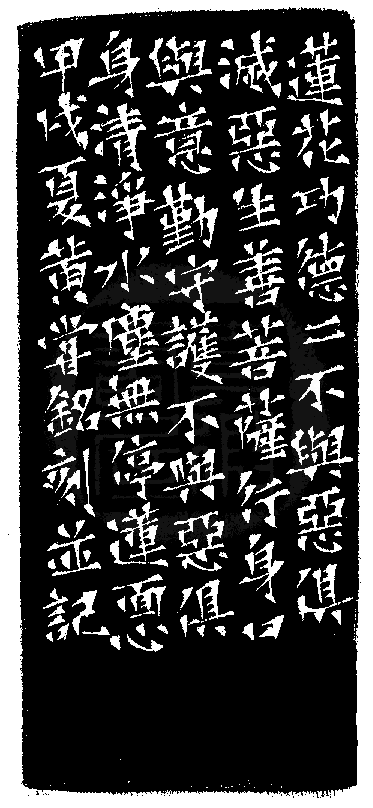 蓮花功德二不與惡俱
滅惡生善菩薩行身口
與意勤守護不與惡俱
身清淨水塵無停蓮
甲戌夏黃嘗銘刻並記